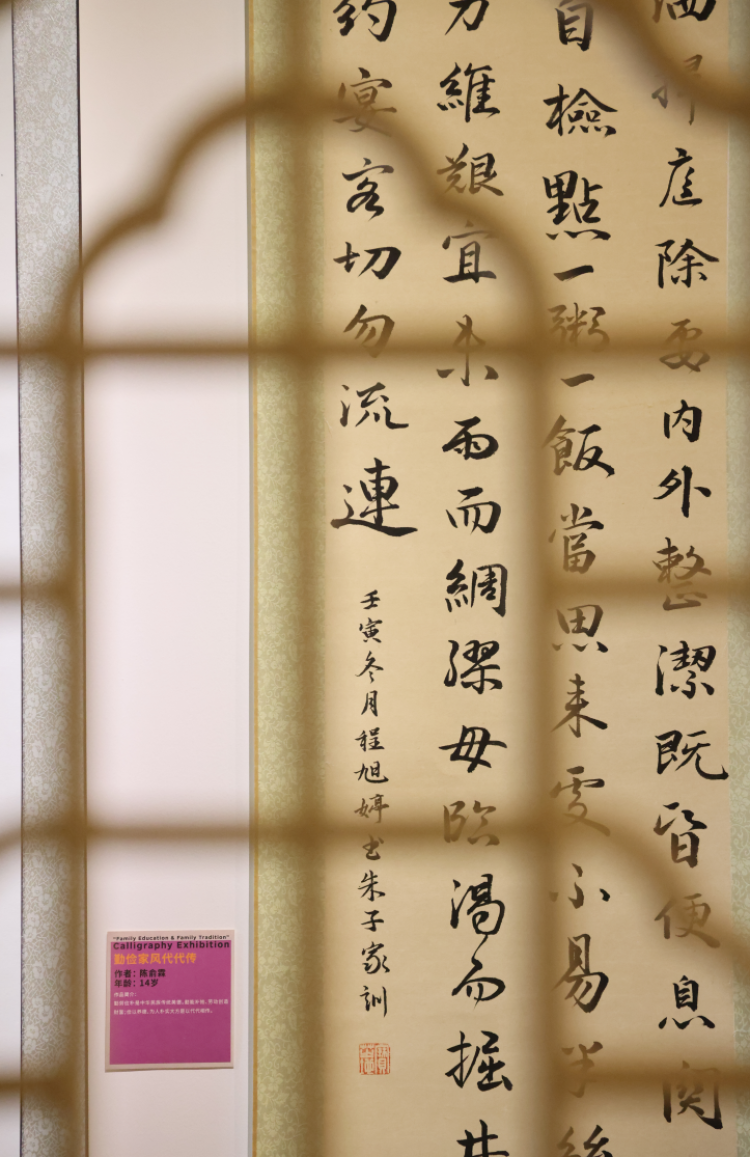 洒掃庭除要内外整潔既昏便息関
自檢點一粥一飯當思来處不易半絲
力維艱宜未雨而綢繆毋臨渴而掘井
約宴客切勿流連
壬寅冬月程旭婷书朱子家訓
"Family Education & Family Tradition"
Calligraphy Exhibition
勤俭家风代代传
作者：陈俞霖
年龄：14岁
作品简介：